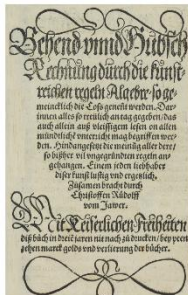 Behend vnnd Hubsch
Rechnung durch die kunst-
reichen regeln Algebre/ so ge-
meincklich die Coss genent werden. Dar-
innen alles so treülich an tag gegeben/ das
auch allein auss vleissigem lesen on allen
mündtlichē vnterricht mag begriffen wer-
den. Hindangesetzt die meinūg aller dere/
so bissher vil vngegründten regeln an-
gehangen. Einem jeden liebhaber
diser kunst lustig vnd ergetzlich.
Zusamen bracht durch
Christoffen Rudolff
vom Jawer.
Mit Keiserlichen Freiheiten
diss büch in dreiē jaren nit nach zů drucken/ bey peen
zehen marck golds vnd verlierung der bücher.